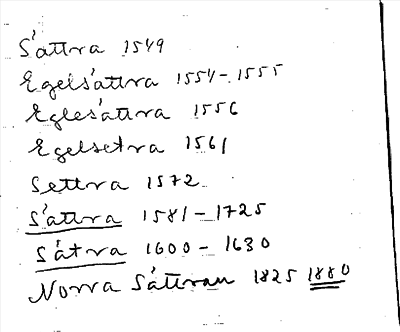 Såttra 1549
Egelsåttra 1554-1555
Eglesåttra 1556
Egelsetra 1561
Settra 1572
Såttra 1581-1725
Såtra 1600-1630
Norra Såttran 1825 1880